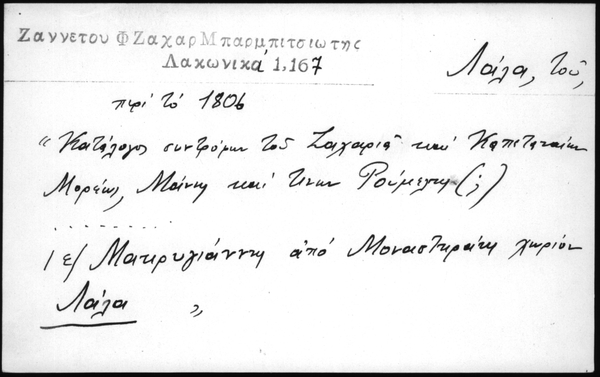 Ζαννετου Φ Ζαχαρ Μπαρμπιτσιωτης
Λακωνικά 1,167
Λάλα, τοῦ,
περί τό 1806
"Κατάλογος συντρόφων τοῦ Ζαχαριᾶ καί Καπεταναίων
Μορέως, Μάνης καί τινων Ρούμελης (;)
........
1 ε/ Μακρυγιάννης ἀπό Μοναστηράκι χωρίον
Λάλα "